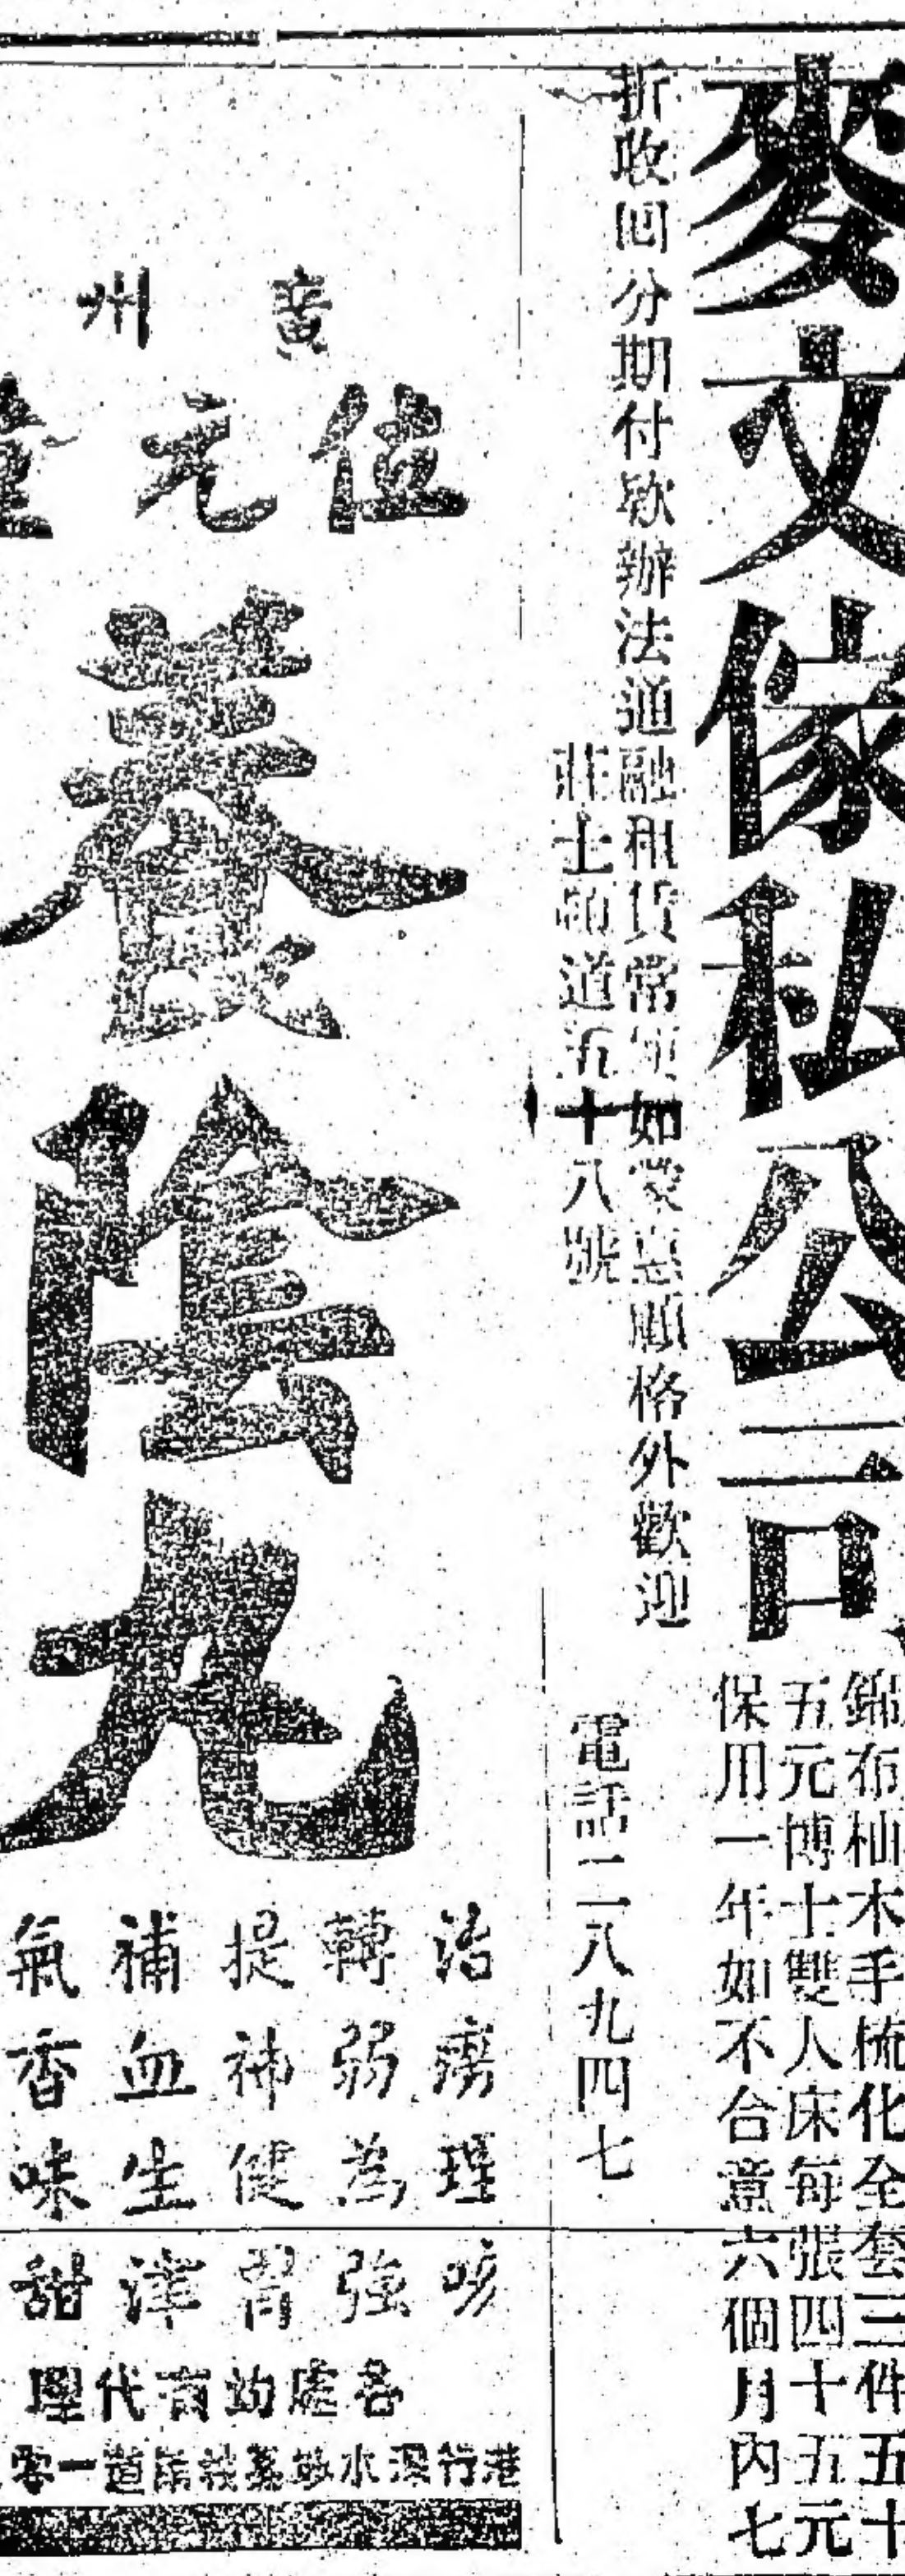 麥文傢私公司
錦布杣木手梳化全套三件五十
五元博士雙人床每張四十五元
保用一年如不合意六個月內七
折收回分期付欵辦法通融租賃常年如蒙惠顧格外歡迎
莊士頓道五十八號
電話二八九四七
廣州
位元堂
養陰丸
治癆理咳
轉弱為強
提神健胃
補血生津
氣香味甜
各處均有代理
港行深水埗荔枝角道一零